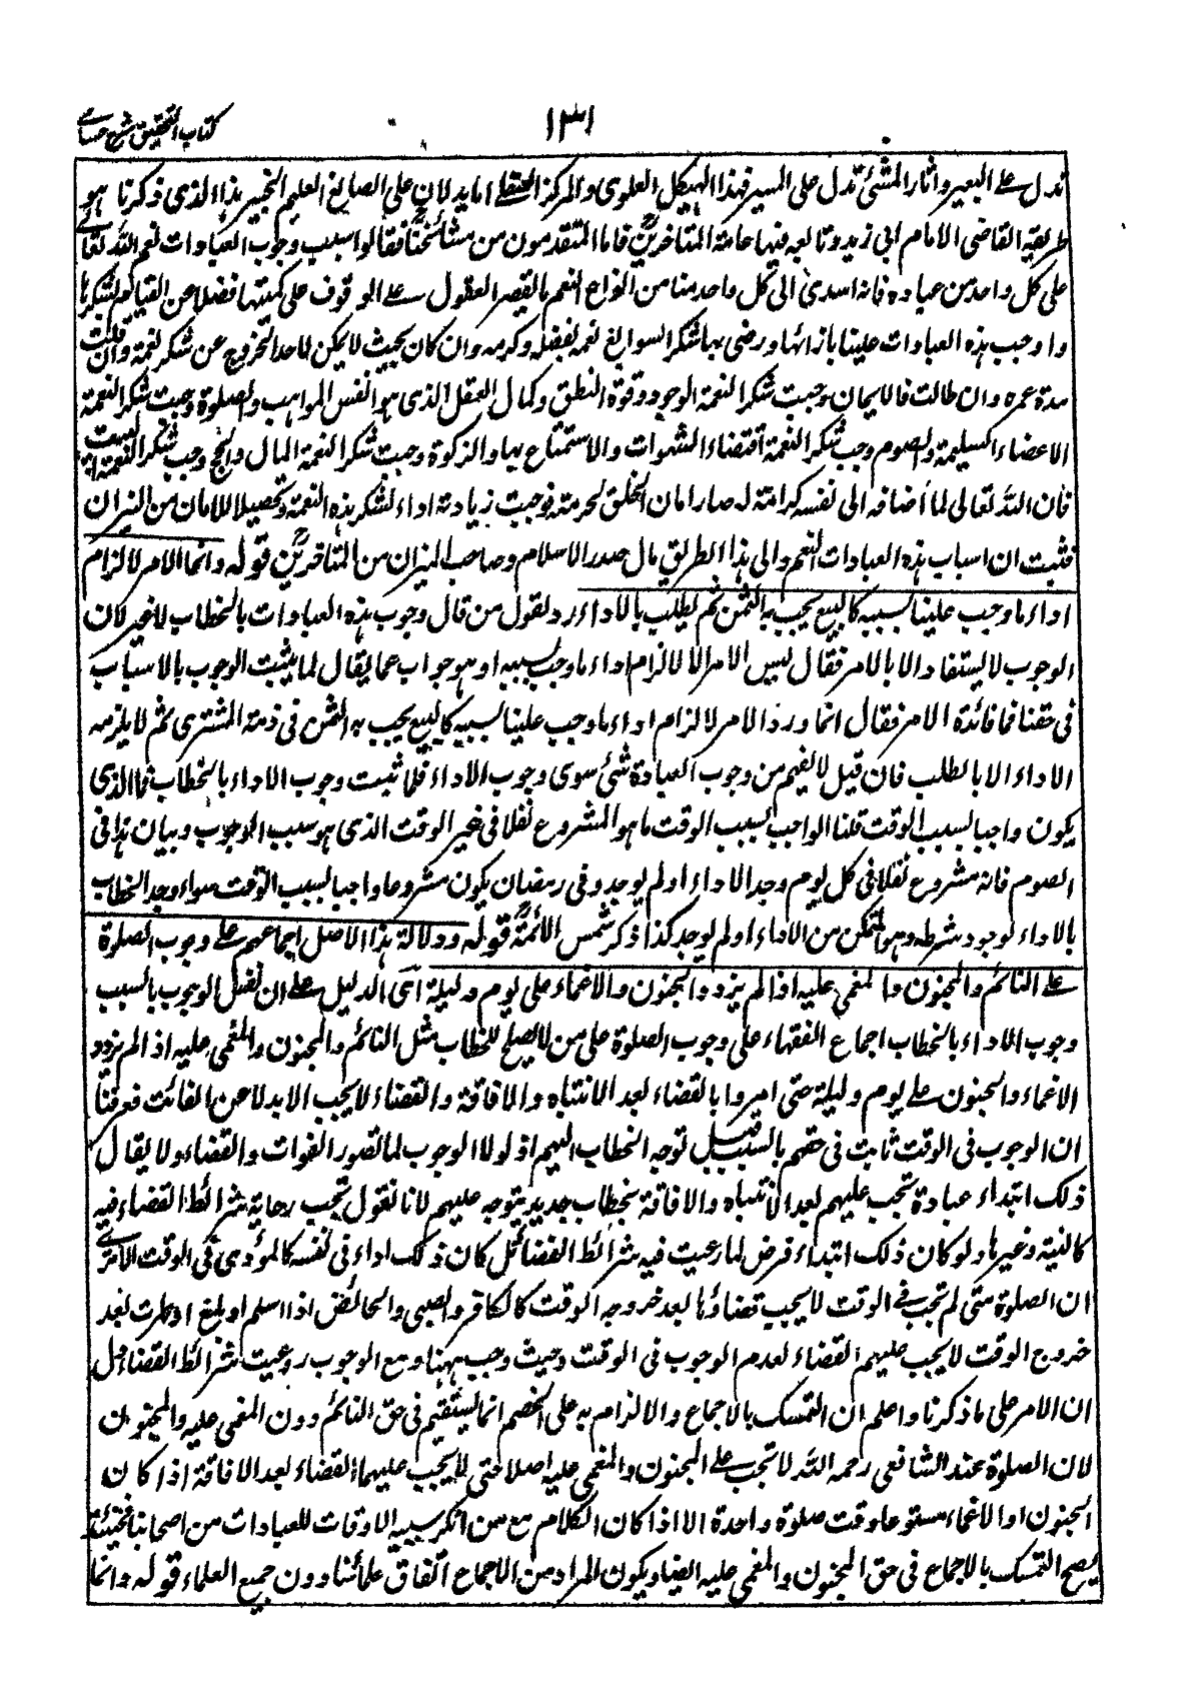 كتاب التحقيق شرح حسامى
١٣١
تدل على البعير واثار المشئ تدل على المسير فهذا الهيكل العلوى والمركز السفلى اما يدلان على الصانع العليم الخبير بذا الذى ذكرنا هو
طريقة القاضى الامام ابى زيد وتابعه فيها عامة المتاخرين فاما المتقدمون من مشائخنا فقالوا سبب وجوب العبادات نعم الله تعالى
على كل واحد من عباده فانه اسدى الى كل واحد منا من انواع النعم ما يقصر العقول على الوقوف على كميتها فضلا عن القيام بشكرها
واوجب بذه العبادات علينا بازائها ورضى بها شكرا لسوابغ نعمه بفضله وكرمه وان كان بحيث لا يمكن لاحد الخروج عن شكر نعمة وان قلت
مدة عمره وان طالت فالايمان وجبت شكرا لنعمة الوجود وقوة النطق وكمال العقل الذى هو انفس المواهب والصلوة وجبت شكرا لنعمة
الاعضاء السليمة والصوم وجب شكرا لنعمة اقتضاء الشهوات والاستمتاع بها والزكوة وجبت شكرا لنعمة المال والحج وجب شكرا لنعمة البيت
فان الله تعالى لما اضافه الى نفسه كرامة له صار امان الخلق لحرمته فوجبت زيادته اداء لشكر بذه النعمة وتحصيلا للامان من النيران
فثبت ان اسباب بذه العبادات النعم والى بذا الطريق مال صدر الاسلام وصاحب الميزان من المتاخرين قوله وانما الامر لالزام
اداء ما وجب علينا بسببه كالبيع يجب به الثمن ثم يطلب بالاداء رد لقول من قال وجوب بذه العبادات بالخطاب لا غير لان
الوجوب لا يستفاد الا بالامر فقال ليس الامر الا لالزام اداء ما وجب بسببه او هو جواب عما يقال لما يثبت الوجوب بالاسباب
فى حقنا فما فائدة الامر فقال انما ورد الامر لالزام اداء ما وجب علينا بسببه كالبيع يجب به الثمن فى ذمة المشترى ثم لا يلزمه
الاداء الا بالطلب فان قيل لا يفهم من وجوب العبادة شئ سوى وجوب الاداء فلما ثبت وجوب الاداء بالخطاب فما الذى
يكون واجبا بسبب الوقت قلنا الواجب بسبب الوقت ما هو المشروع نفلا فى غير الوقت الذى هو سبب الوجوب وبيان بذا فى
الصوم فانه مشروع نفلا فى كل يوم وجد الاداء او لم يوجد وفى رمضان يكون مشروعا واجبا بسبب الوقت سواء وجد الخطاب
بالاداء لوجود شرطه وهو التمكن من الاداء او لم يوجد كذا ذكر شمس الائمة قوله ودلالة بذا الاصل اجماعهم على وجوب الصلوة
على النائم والمجنون والمغمى عليه اذا لم يزدد الجنون والاغماء على يوم وليلة اى الدليل على ان نفس الوجوب بالسبب
وجوب الاداء بالخطاب اجماع الفقهاء على وجوب الصلوة على من لا يصلح للخطاب مثل النائم والمجنون والمغمى عليه اذ المريزدد
الاغماء والجنون على يوم وليلة حتى امروا بالقضاء بعد الانتباه والافاقة والقضاء لا يجب الا بدلا عن الفائت فعرفنا
ان الوجوب فى الوقت ثابت فى حقهم بالسبب قبل توجه الخطاب اليهم اذ لولا الوجوب لما تصور الفوات والقضاء ولا يقال
ذلك ابتداء عبادة تجب عليهم بعد الانتباه والافاقة بخطاب جديد يتوجه عليهم لانا نقول تجب رعاية شرائط القضاء فيه
كالنية وغيرها ولو كان ذلك ابتداء فرض لما رعيت فيه شرائط القضاء بل كان ذلك اداء فى نفسه كالمؤدى فى الوقت الا ترى
ان الصلوة متى لم تجب فى الوقت لا يجب قضاؤها بعد خروجه الوقت كالكافر والصبى والحائض اذا اسلم او بلغ او طهرت بعد
خروج الوقت لا يجب عليهم القضاء لعدم الوجوب فى الوقت وحيث وجب ههنا ومع الوجوب روعيت شرائط القضاء دل
ان الامر على ما ذكرنا واعلم ان التمسك بالاجماع والالزام به على الخصم انما يستقيم فى حق النائم دون المغمى عليه والمجنون
لان الصلوة عند الشافعى رحمه الله لا تجب على المجنون والمغمى عليه اصلا حتى لا يجب عليهما القضاء بعد الافاقة اذا كان
الجنون او الاغماء مستوعبا وقت صلوة واحدة الا اذا كان الكلام مع من انكر سببية الاوقات للعبادات من اصحابنا فحينئذ
يصح التمسك بالاجماع فى حق المجنون والمغمى عليه ايضا ويكون المراد من الاجماع اتفاق علمائنا دون جميع العلماء قوله وانما